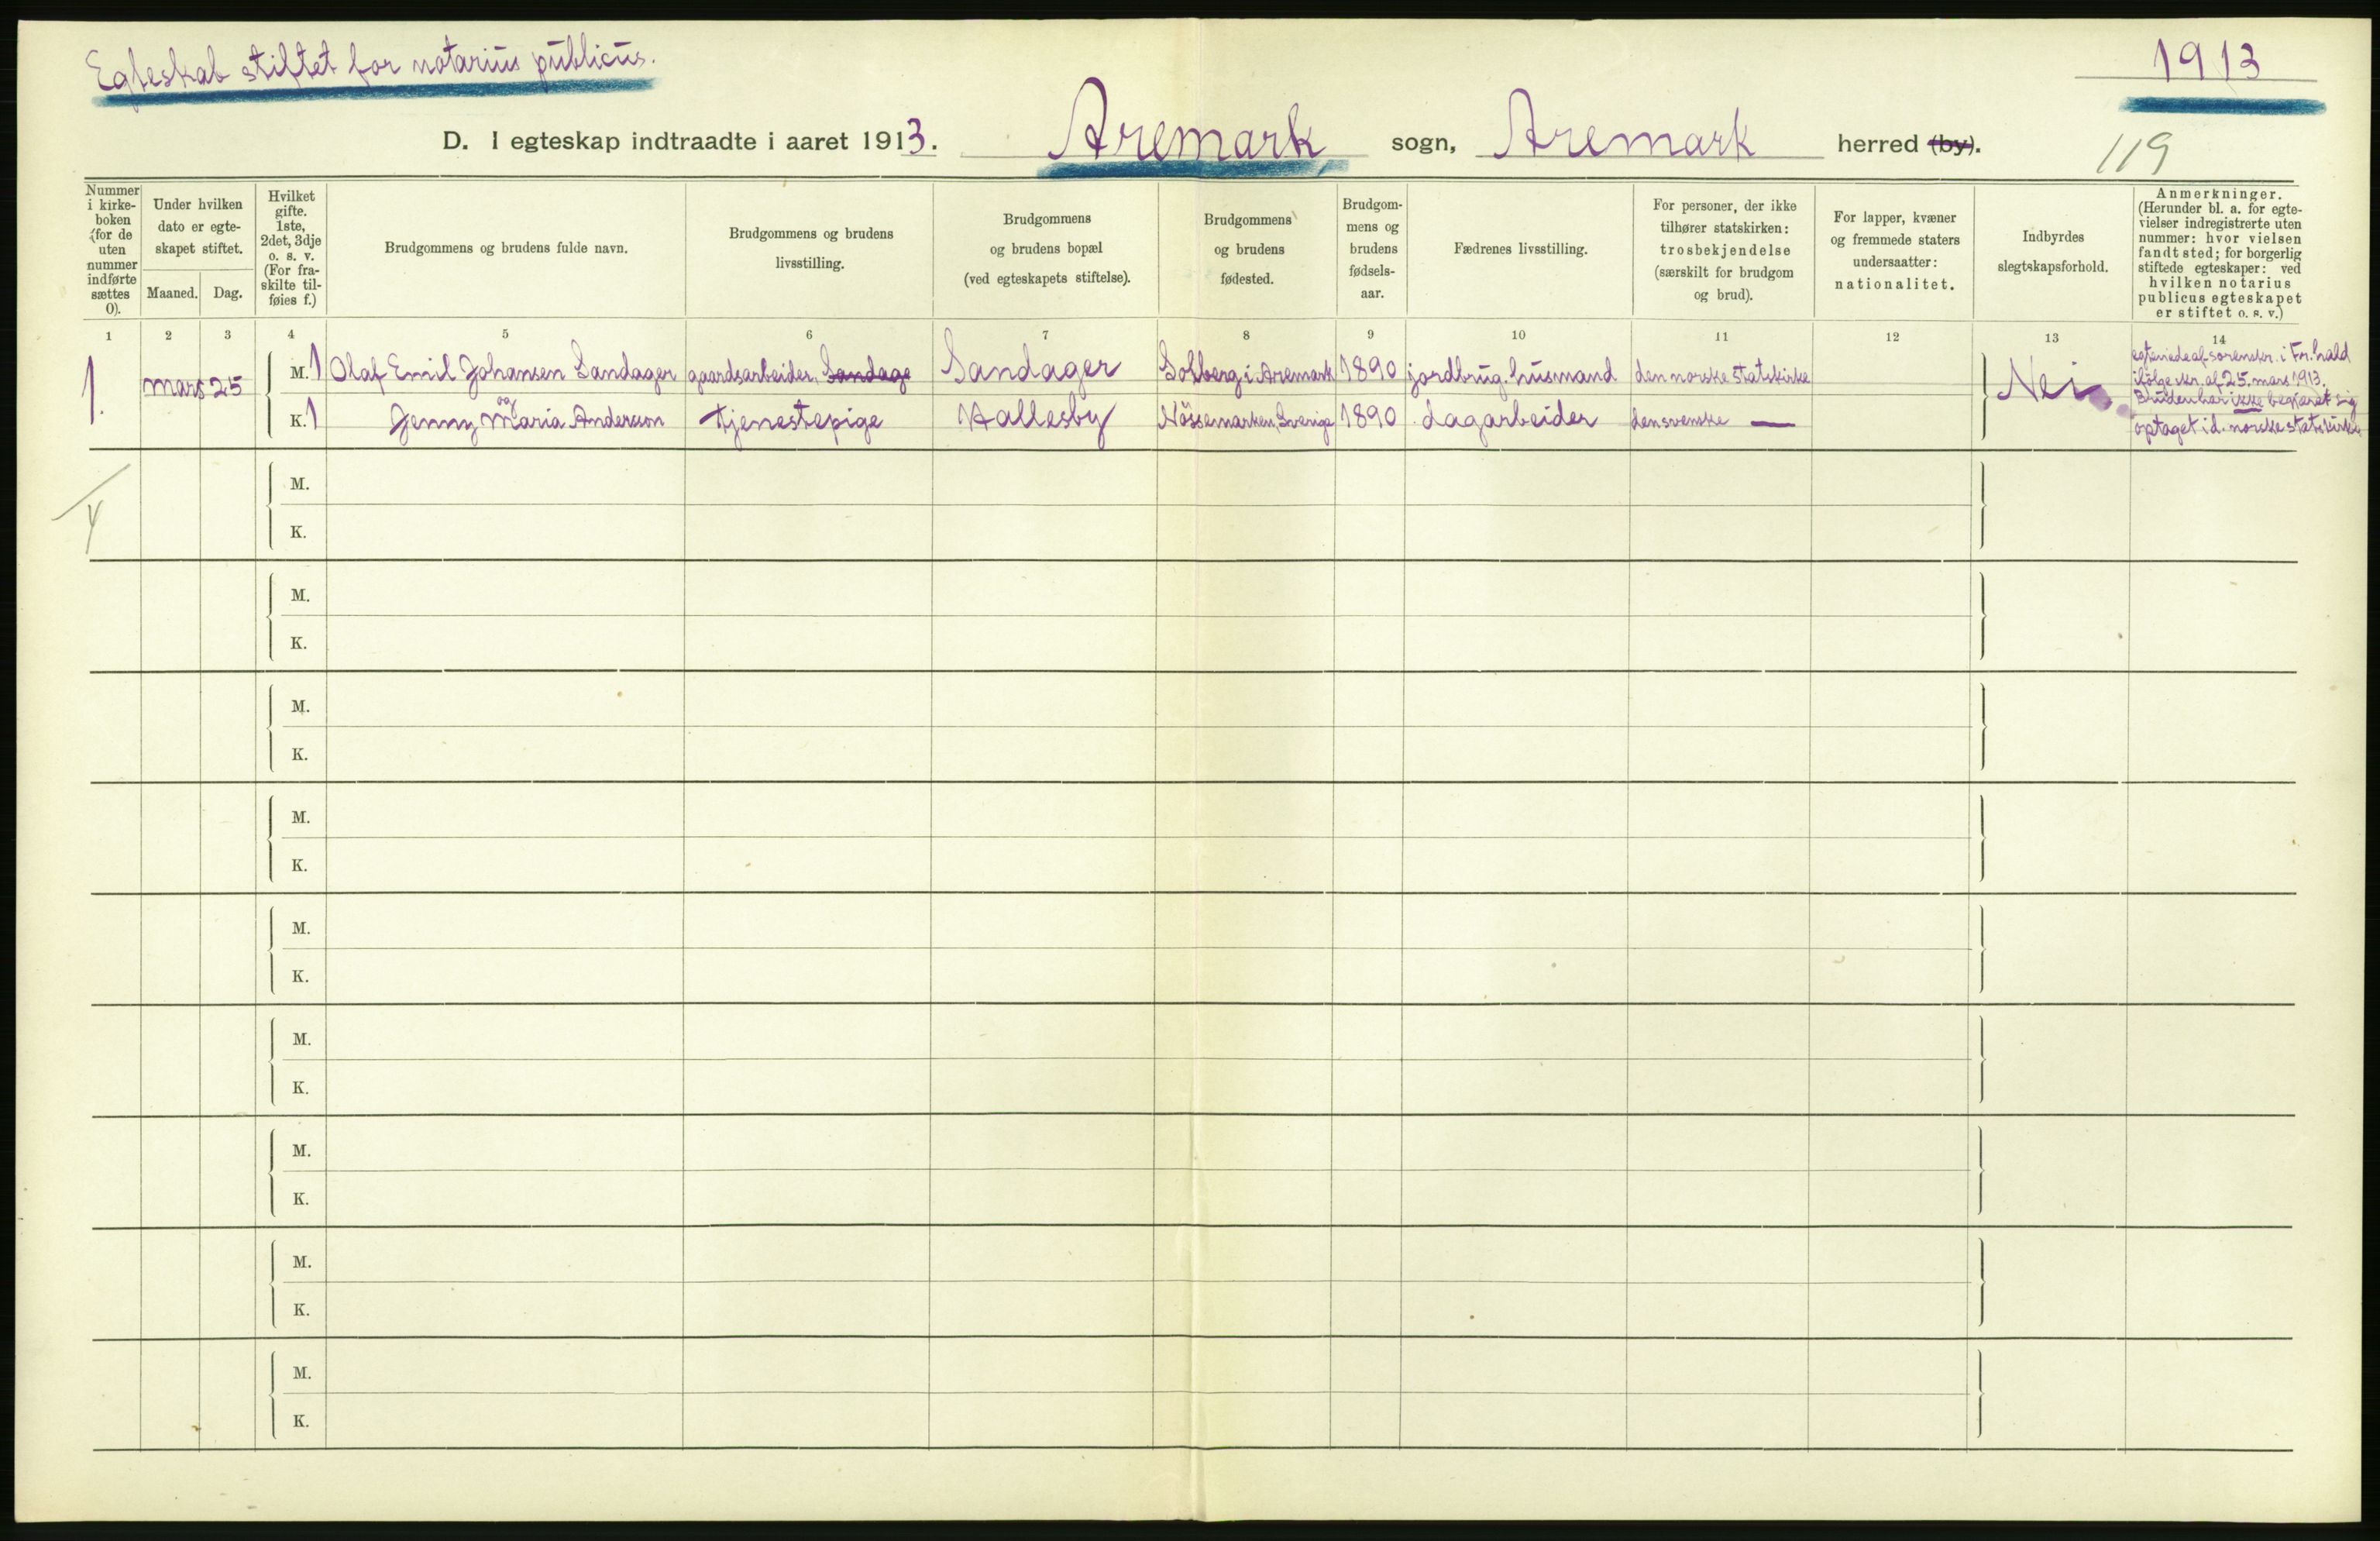 Egteskab stiftet for notarius publicus.
1913
D. I egteskap indtraadte i aaret 1913. Aremark sogn, Aremark herred (by).
119
Nummer i kirkeboken (for de uten nummer indførte sættes 0).
Under hvilken dato er egteskapet stiftet.
Maaned. Dag.
Hvilket gifte. 1ste, 2det, 3dje o. s. v. (For fraskilte tilføies f.)
Brudgommens og brudens fulde navn.
Brudgommens og brudens livsstilling.
Brudgommens og brudens bopæl (ved egteskapets stiftelse).
Brudgommens og brudens fødested.
Brudgommens og brudens fødselsaar.
Fædrenes livsstilling.
For personer, der ikke tilhører statskirken: trosbekjendelse (særskilt for brudgom og brud).
For lapper, kvæner og fremmede staters undersaatter: nationalitet.
Indbyrdes slegtskapsforhold.
Anmerkninger. (Herunder bl. a. for egtevielser indregistrerte uten nummer: hvor vielsen fandt sted; for borgerlig stiftede egteskaper: ved hvilken notarius publicus egteskapet er stiftet o. s. v.)
1 2 3 4 5 6 7 8 9 10 11 12 13 14
1. mars 25 M. 1 Olaf Emil Johansen Sandager gaardsarbeider, Sandage Sandager Solberg i Aremark 1890 jordbrug. husmand den norske statskirke Nei
og
K. 1 Jenny Maria Andersson tjenestepige Hallesby Nössemarken, Sverige 1890 dagarbeider den svenske —
egteviede af sorenskr. i Fr.hald
ifölge skr. af 25. mars 1913.
Bruden har ikke begjæret sig
optaget i d. norske statskirke
M.
K.
4
M.
K.
M.
K.
M.
K.
M.
K.
M.
K.
M.
K.
M.
K.
M.
K.